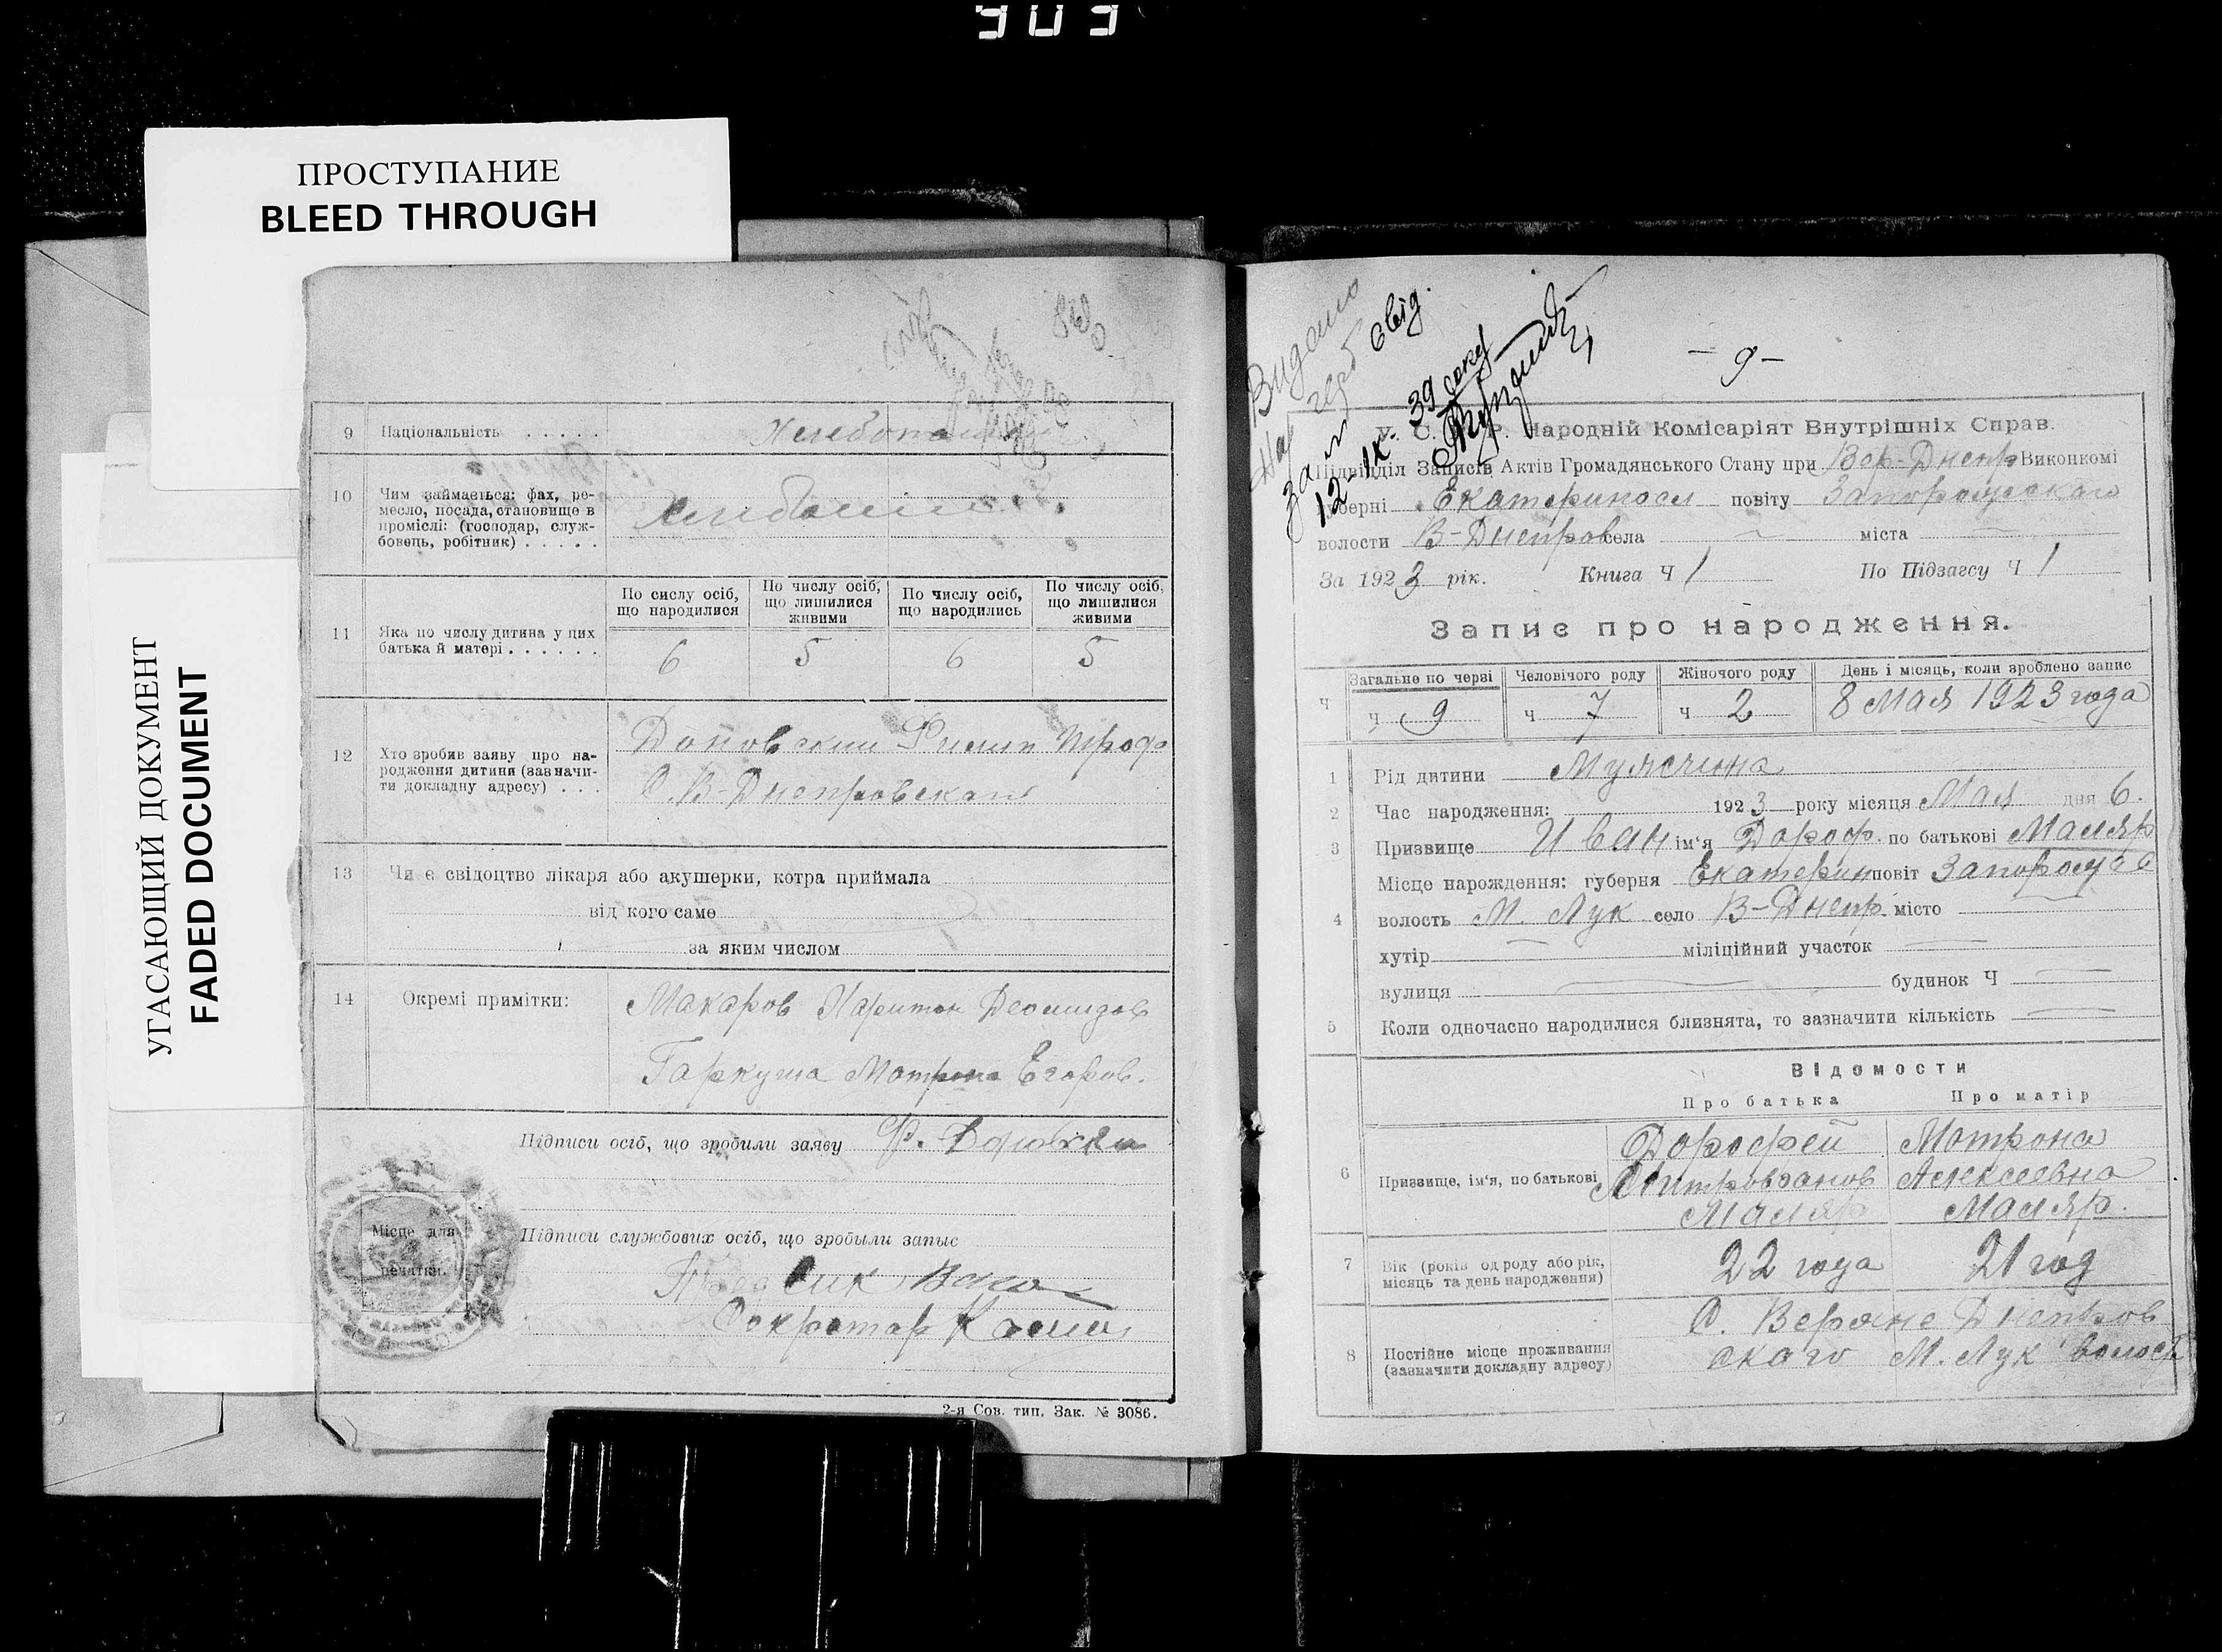 903
ПРОСТУПАНИЕ
BLEED THROUGH
УГАСАЮЩИЙ ДОКУМЕНТ
FADED DOCUMENT
9 Національність . . . . .
10 Чим займається: фах, ре-
месло, посада, становище в
промислі: (господар, служ-
бовець, робітник) . . . . .
По сислу осіб, що народилися
По числу осіб, що лишилися живими
По числу осіб, що народились
По числу осіб, що лишилися живими
11 Яка по числу дитина у цих
батька й матері . . . . . .
6 5 6 5
12 Хто зробив заяву про на-
родження дитини (зазначи-
ти докладну адресу) . . .
С. В-Днепровскаго
13 Чи є свідоцтво лікаря або акушерки, котра приймала
від кого саме
за яким числом
14 Окремі примітки:
Макаров Харитон Деомидов
Гаркуша Мотрона Егоров.
Підписи осіб, що зробили заяву
Місце для
печатки.
Підписи службових осіб, що зробыли запыс
Секретар
2-я Сов. тип. Зак. № 3086.
Видано
свід.
12-IX 39 року
- 9 -
У. С. Р. Народній Комісаріят Внутрішніх Справ.
Підвідділ Записів Актів Громадянського Стану при Вер-Днепр Виконкомі
губерні Екатериносл повіту Запорожскаго
волости В-Днепров села міста
За 1923 рік. Книга Ч 1 По Підзагсу Ч 1
Запис про народження.
Ч Загальне по черзі Человічого роду Жіночого роду День і місяць, коли зроблено запис
ч 9 ч 7 ч 2 8 Мая 1923 года
1 Рід дитини Мужчина
2 Час народження: 1923 року місяця Мая дня 6.
3 Призвище Иван ім'я Дороф. по батькові Маляр
Місце нарождення: губерня Екатерин повіт Запорож
4 волость М. Лук село В-Днепр. місто
хутір міліційний участок
вулиця будинок Ч
5 Коли одночасно народилися близнята, то зазначити кількість
Відомости
Про батька Про матір
6 Призвище, ім'я, по батькові
Дорофей Мотрона
Митрофанов Алексеевна
Маляр Маляр.
7 Вік (років од роду або рік,
місяць та день народження)
22 года 21 год
8 Постійне місце проживання
(зазначити докладну адресу)
С. Верхне Днепров
ского М. Лук волост